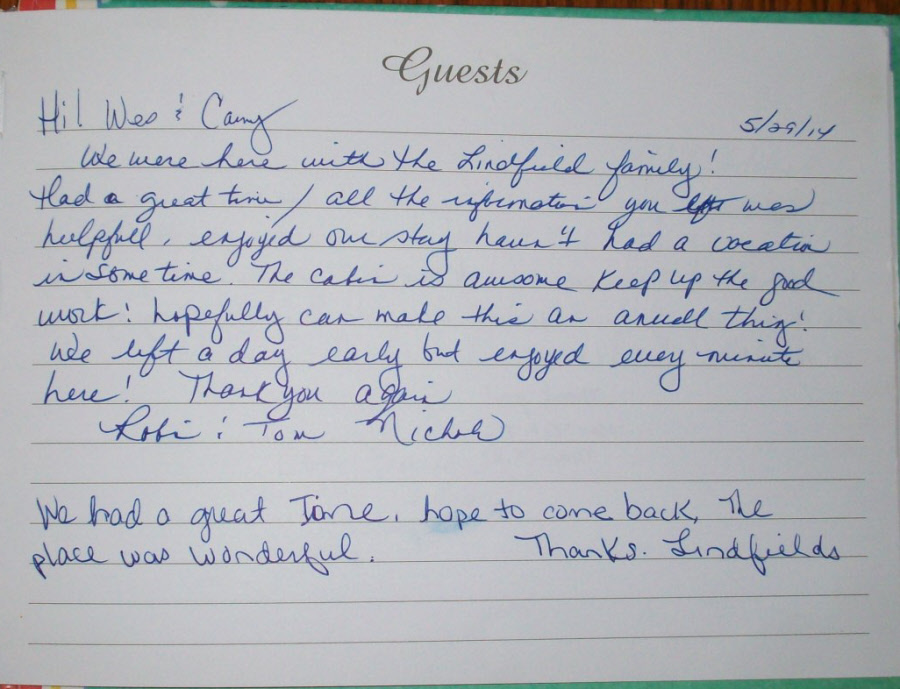 Guests
Hi! Wes & Camy
5/29/14
We were here with the Lindfield family!
Had a great time / all the information you left was
helpfull, enjoyed our stay haven't had a vocation
in some time. The cabin is awsome Keep up the good
work! hopefully can make this an anuall thing!
We left a day early but enjoyed every minute
here! Thank you again
Robin & Tom Nichols
We had a great Time, hope to come back, The
place was wonderful. Thanks. Lindfields